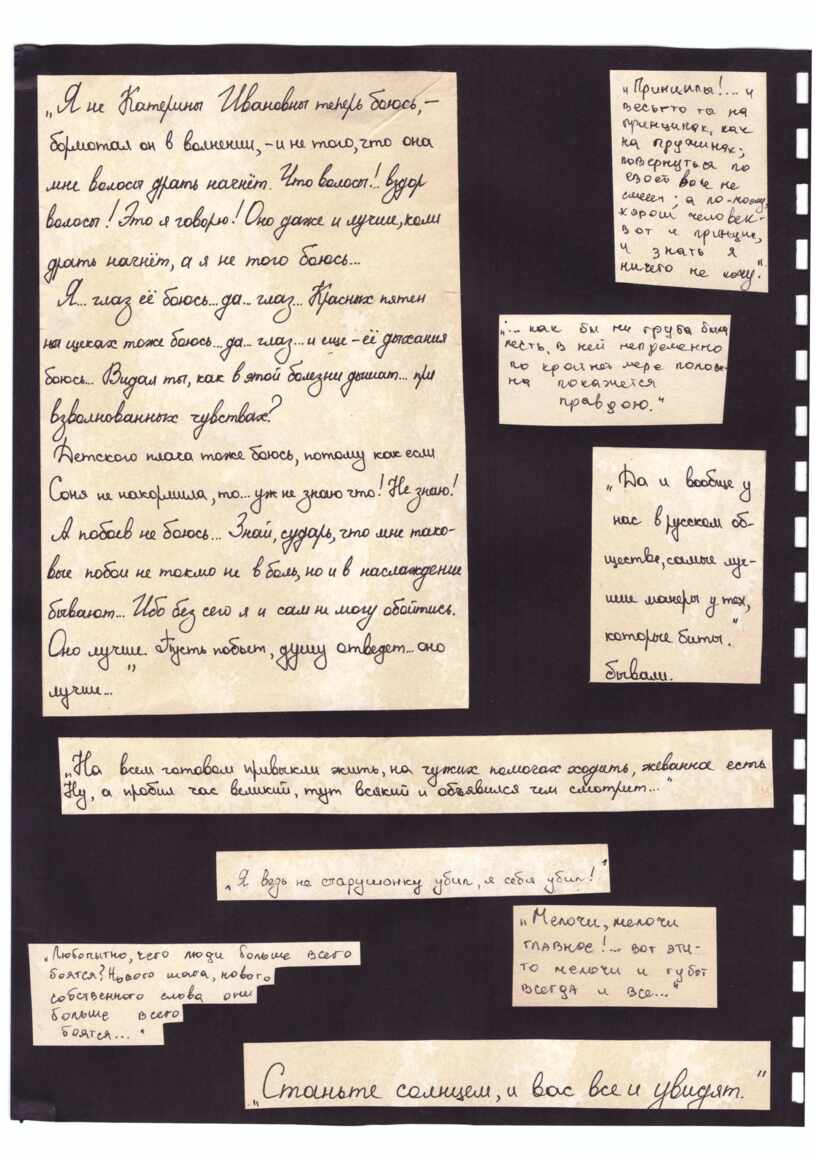 „Я не Катерины Ивановны теперь боюсь, –
бормотал он в волнении, – и не того, что она
мне волосы драть начнёт. Что волосы!.. вздор
волосы! Это я говорю! Оно даже и лучше, коли
драть начнёт, а я не того боюсь...
Я... глаз её боюсь... да... глаз... Красных пятен
на щеках тоже боюсь... да... глаз... и еще – её дыхания
боюсь... Видал ты, как в этой болезни дышат... при
взволнованных чувствах?
Детского плача тоже боюсь, потому как если
Соня не накормила, то... уж не знаю что! Не знаю!
А побоев не боюсь... Знай, сударь, что мне тако-
вые побои не токмо не в боль, но и в наслаждение
бывают... Ибо без сего я и сам не могу обойтись.
Оно лучше. Пусть побьет, душу отведет... оно
лучше..."
„Принципы!... и
весь-то ты на
принципах, как
на пружинах;
повернуться по
своей воле не
смеет; а по-моему,
хорош человек-
вот и принцип,
и знать я
ничего не хочу."
„... как бы ни груба была
лесть, в ней непременно
по крайней мере полови-
на покажется
правдою."
„Да и вообще у
нас в русском об-
ществе, самые луч-
шие манеры у тех,
которые биты
бывали."
„На всем готовом привыкли жить, на чужих помочах ходить, жеванное есть.
Ну, а пробил час великий, тут всякий и объявился чем смотрит..."
„Я ведь не старушонку убил, я себя убил!"
„Мелочи, мелочи
главное!... вот эти-
то мелочи и губят
всегда и все..."
„Любопытно, чего люди больше всего
боятся? Нового шага, нового
собственного слова они
больше всего
боятся..."
„Станьте солнцем, и вас все и увидят."